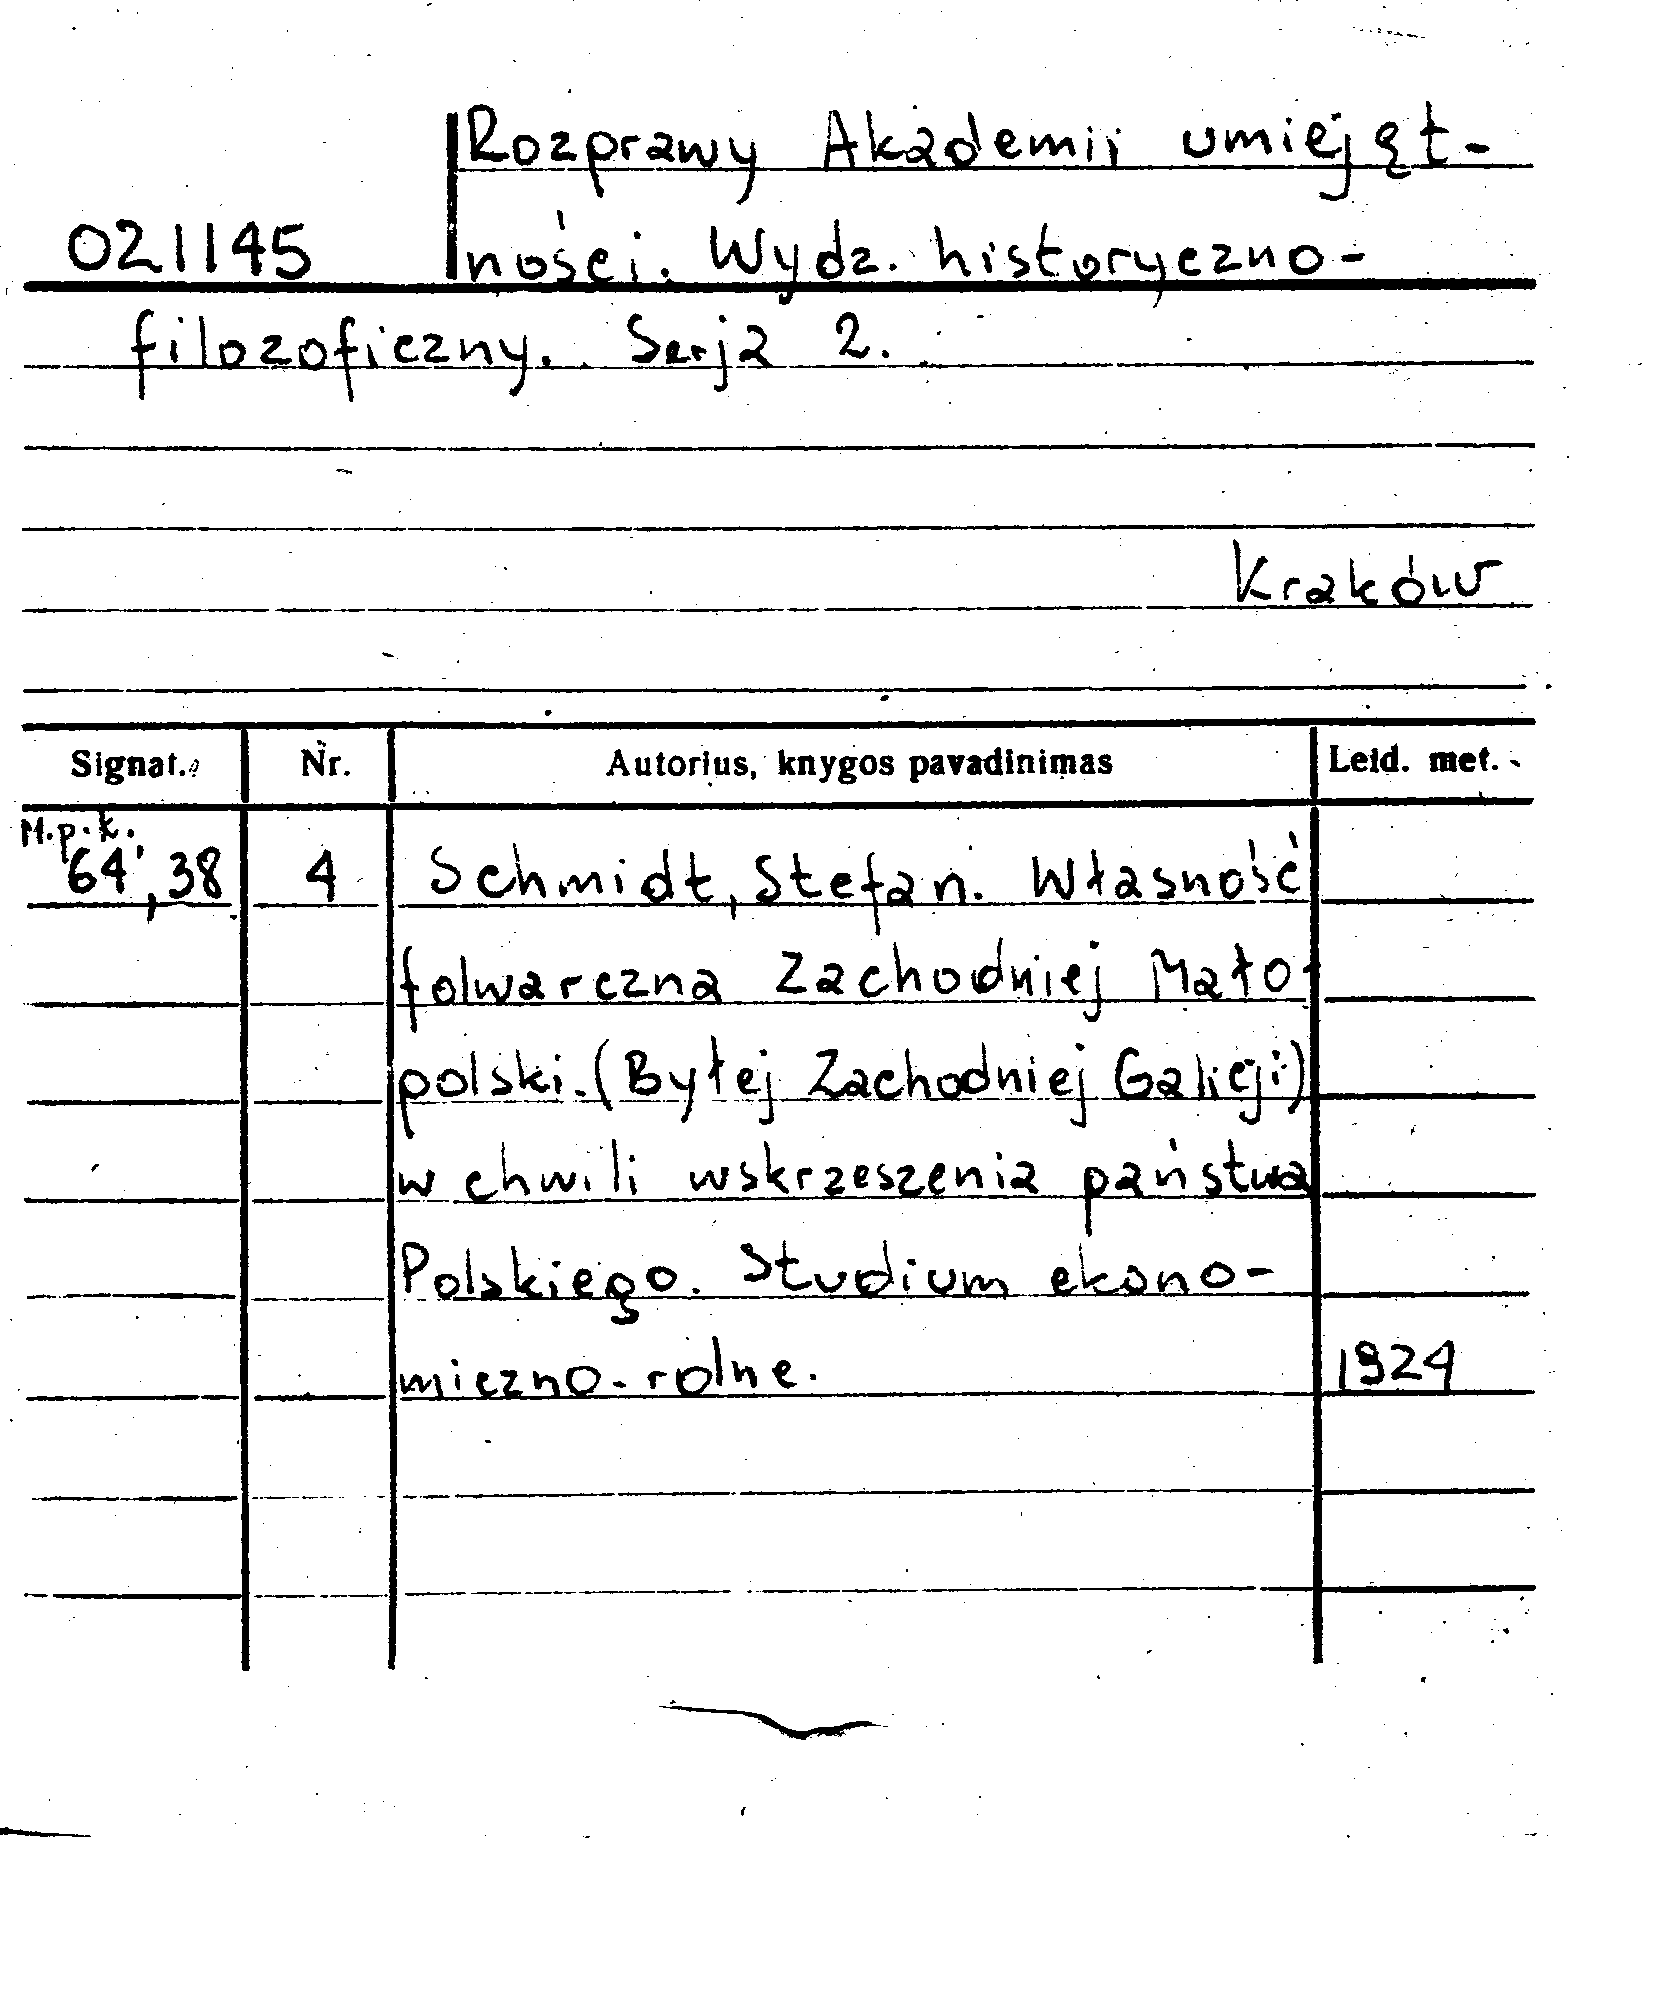 Rozprawy Akademii umiejęt-
021145 ności. Wydz. historyczno-
filozoficzny. Serja 2.
Kraków
Signat. Nr. Autorius, knygos pavadinimas Leid. met.
M.p.k.
64, 38 4 Schmidt, Stefan. Własność
folwarczna Zachodniej Mało-
polski. (Byłej Zachodniej Galicji)
w chwili wskrzeszenia państwa
Polskiego. Studium ekono-
miczno-rolne. 1924